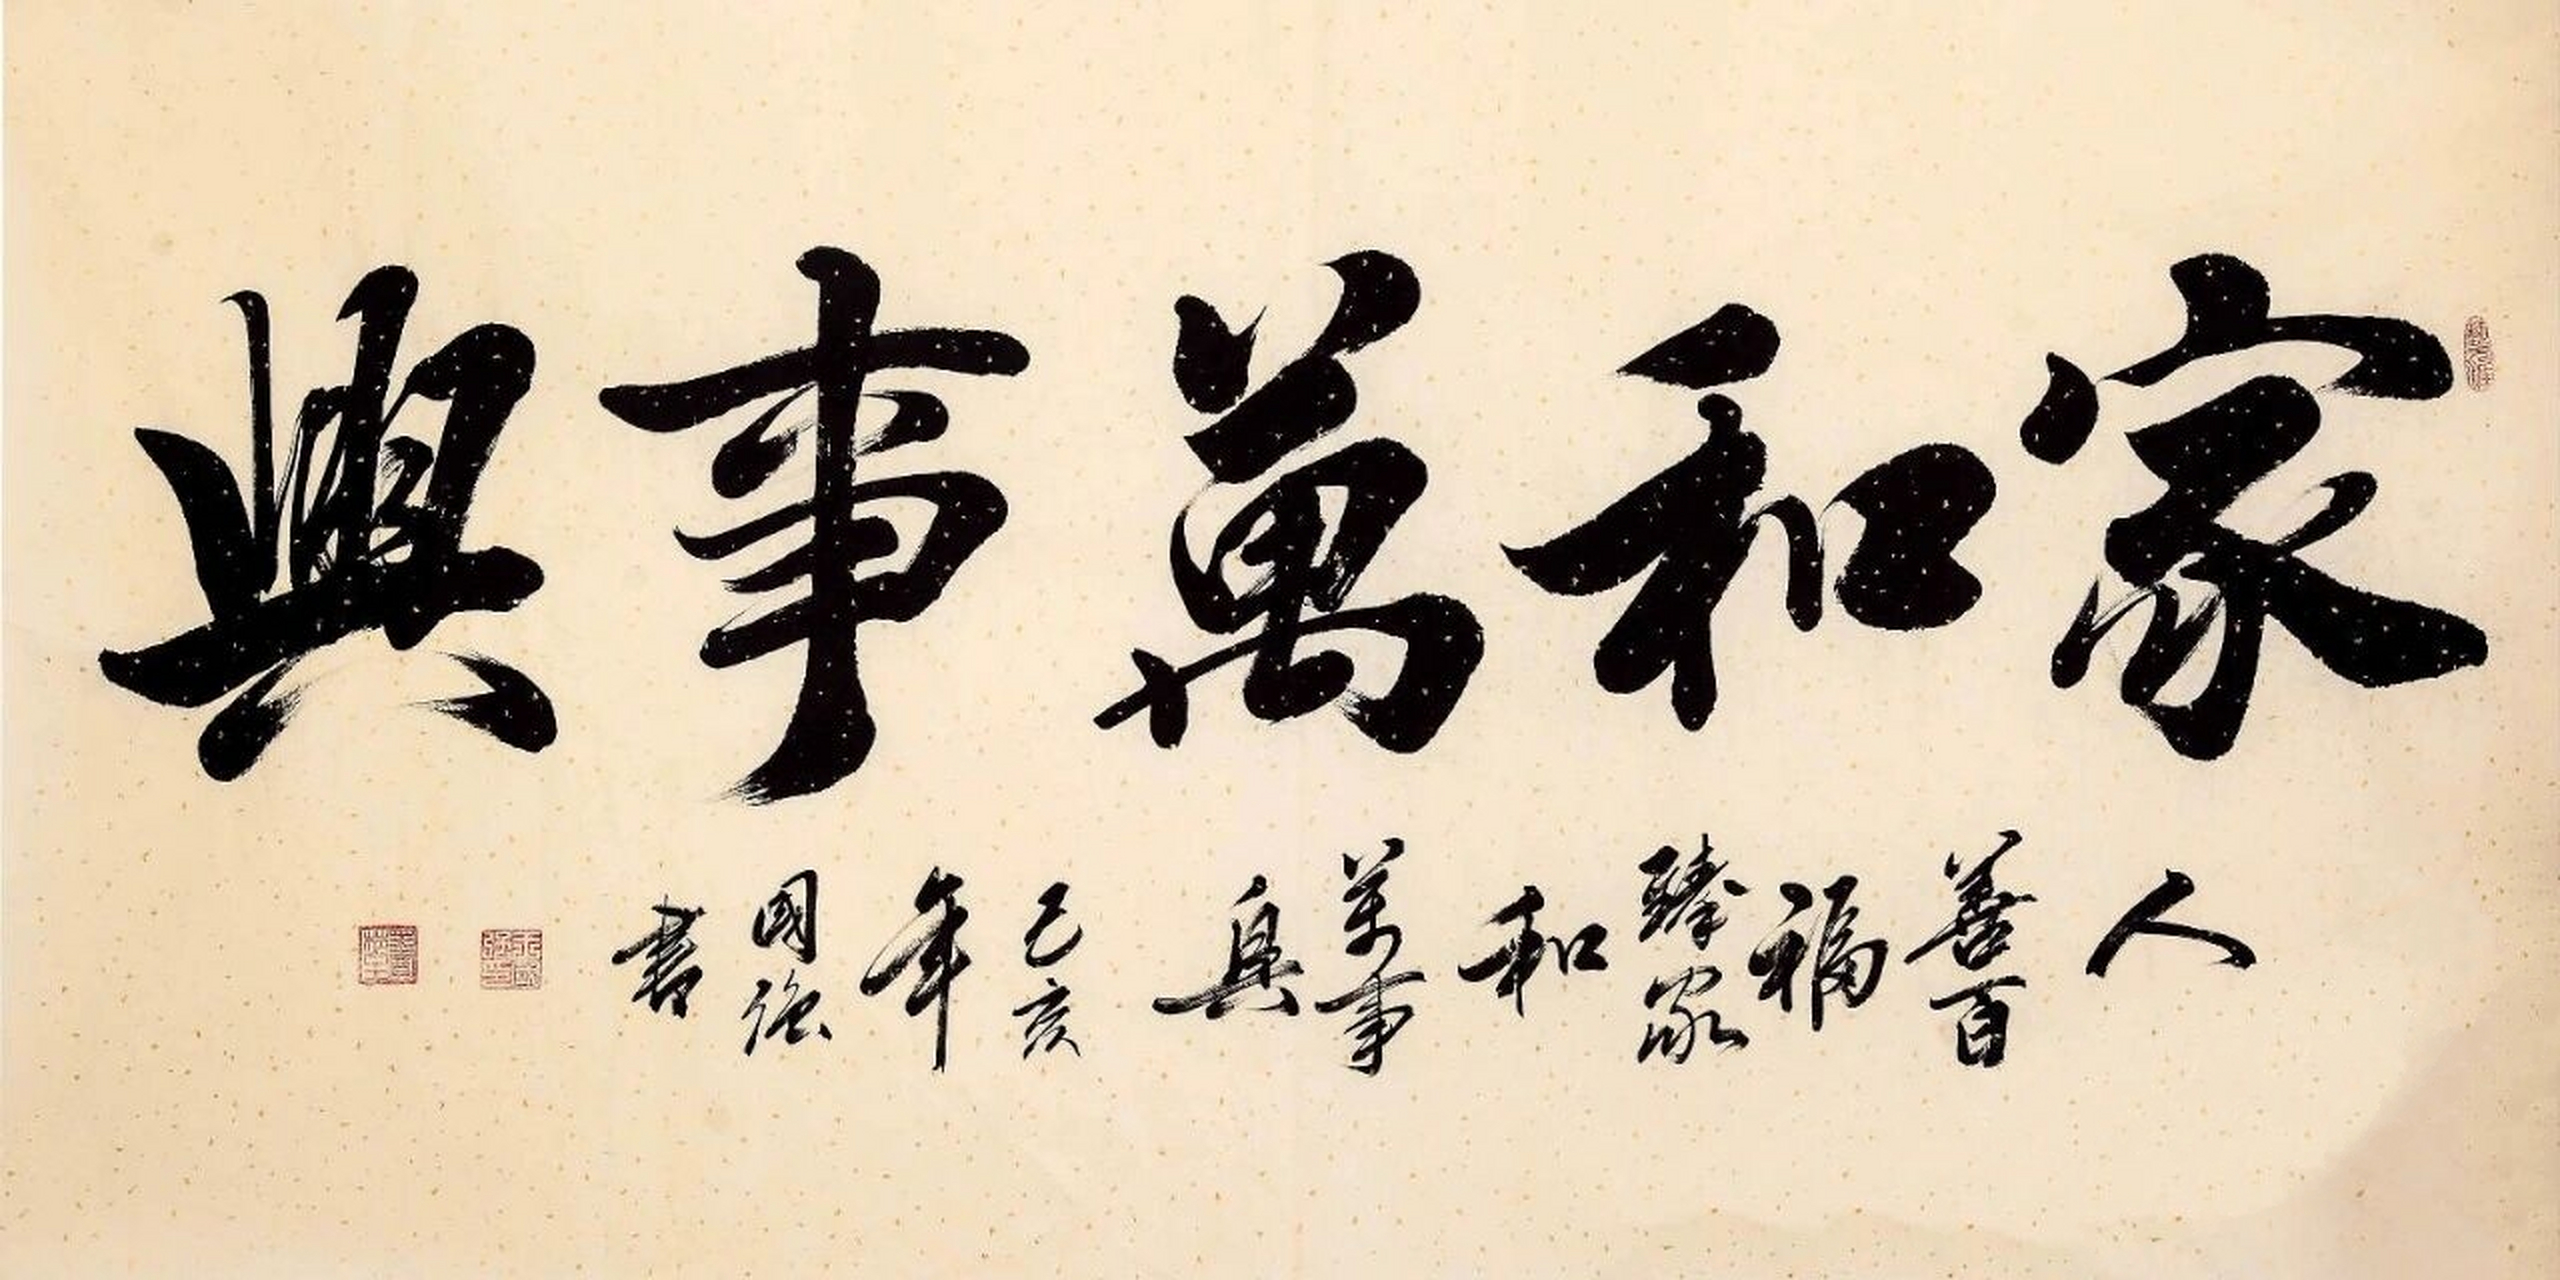 家和萬事興
人善百福臻家和萬事興己亥年國強書